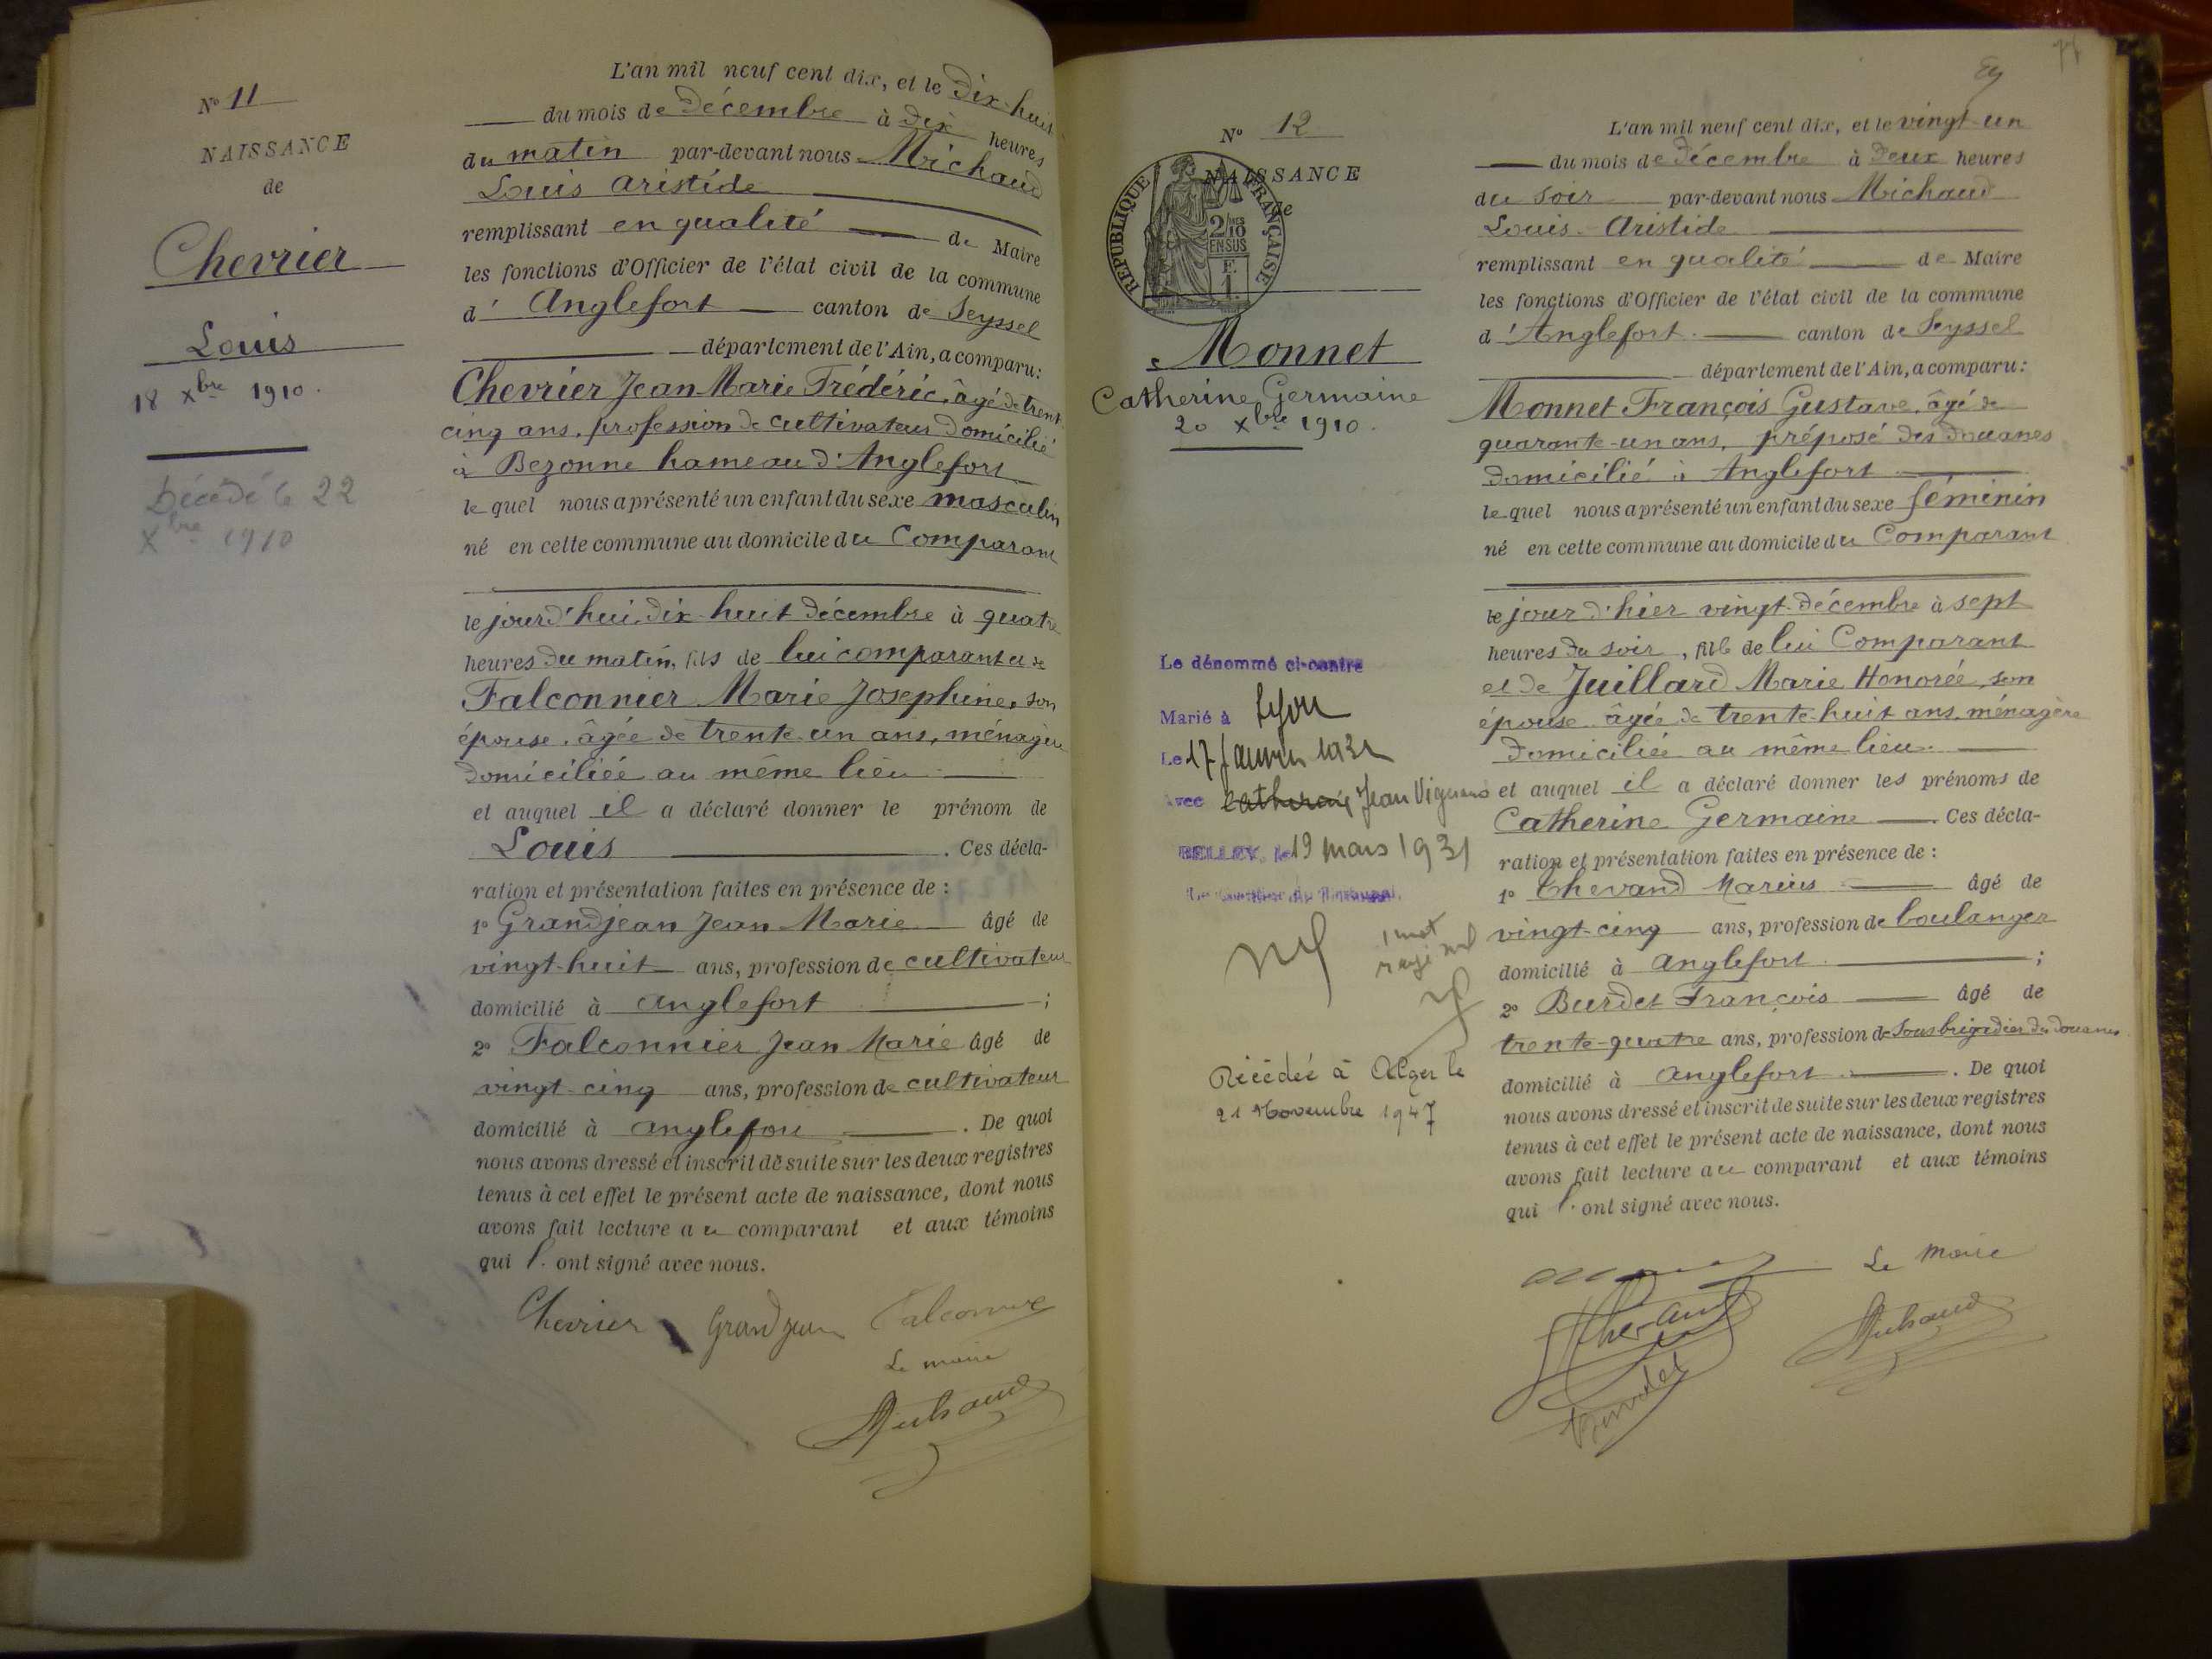 N° 11
NAISSANCE
de
Chevrier
Louis
18 Xbre 1910.
Décédé le 22
Xbre 1910
L'an mil neuf cent dix, et le Dix-huit
du mois de Décembre à Dix heures
du matin par-devant nous Michaud
Louis Aristide
remplissant en qualité de Maire
les fonctions d'Officier de l'état civil de la commune
d' Anglefort canton de Seyssel
département de l'Ain, a comparu :
Chevrier Jean Marie Frédéric, âgé de trente
cinq ans, profession de cultivateur domicilié
à Bezonne hameau d'Anglefort
lequel nous a présenté un enfant du sexe masculin
né en cette commune au domicile du Comparant
le jourd'hui, dix huit décembre à quatre
heures du matin, fils de lui comparant et de
Falconnier Marie Josephine, son
épouse, âgée de trente-un ans, ménagère
domiciliée au même lieu
et auquel il a déclaré donner le prénom de
Louis . Ces décla-
ration et présentation faites en présence de :
1° Grandjean Jean Marie âgé de
vingt-huit ans, profession de cultivateur
domicilié à Anglefort ;
2° Falconnier Jean Marie âgé de
vingt-cinq ans, profession de cultivateur
domicilié à Anglefort . De quoi
nous avons dressé et inscrit de suite sur les deux registres
tenus à cet effet le présent acte de naissance, dont nous
avons fait lecture au comparant et aux témoins
qui l'ont signé avec nous.
Chevrier Grandjean Falconnier
Le maire
Michaud
N° 12
NAISSANCE
de
REPUBLIQUE FRANÇAISE
2/10 MES
EN SUS
F.
1.
Monnet
Catherine Germaine
20 Xbre 1910.
Le dénommé ci-contre
Marié à Lyon
Le 17 Janvier 1931
Avec Catherine Jean
BELLEY, le 19 mars 1931
Le Greffier du Tribunal,
1 mot
rayé nul
Décédée à Alger le
21 Novembre 1947
L'an mil neuf cent dix, et le vingt-un
du mois de Décembre à Deux heures
du soir par-devant nous Michaud
Louis Aristide
remplissant en qualité de Maire
les fonctions d'Officier de l'état civil de la commune
d'Anglefort canton de Seyssel
département de l'Ain, a comparu :
Monnet François Gustave, âgé de
quarante-un ans, préposé des douanes
domicilié à Anglefort
lequel nous a présenté un enfant du sexe féminin
né en cette commune au domicile du Comparant
le jour d'hier vingt-décembre à sept
heures du soir, fille de lui Comparant
et de Juillard Marie Honorée, son
épouse âgée de trente-huit ans, ménagère
domiciliée au même lieu.
et auquel il a déclaré donner les prénoms de
Catherine Germaine . Ces décla-
ration et présentation faites en présence de :
1° Chevand Marius âgé de
vingt-cinq ans, profession de boulanger
domicilié à Anglefort ;
2° Burdet François âgé de
trente-quatre ans, profession de Sous brigadier des douanes
domicilié à Anglefort . De quoi
nous avons dressé et inscrit de suite sur les deux registres
tenus à cet effet le présent acte de naissance, dont nous
avons fait lecture au comparant et aux témoins
qui l'ont signé avec nous.
Le Maire
Chevand
Michaud
Burdet